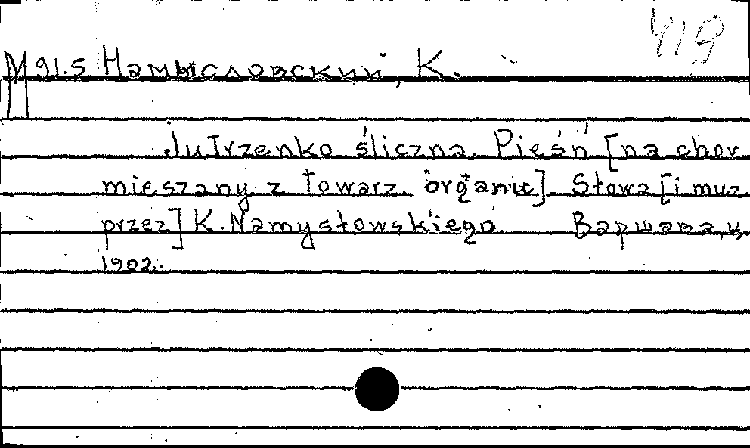 419
M 91.5 Намысловский, К.
Jutrzenko śliczna. Pieśń [na chór
mieszany z towarz. organu]. Słowa [i muz.
przez] K. Namysłowskiego. Варшава,
1902.